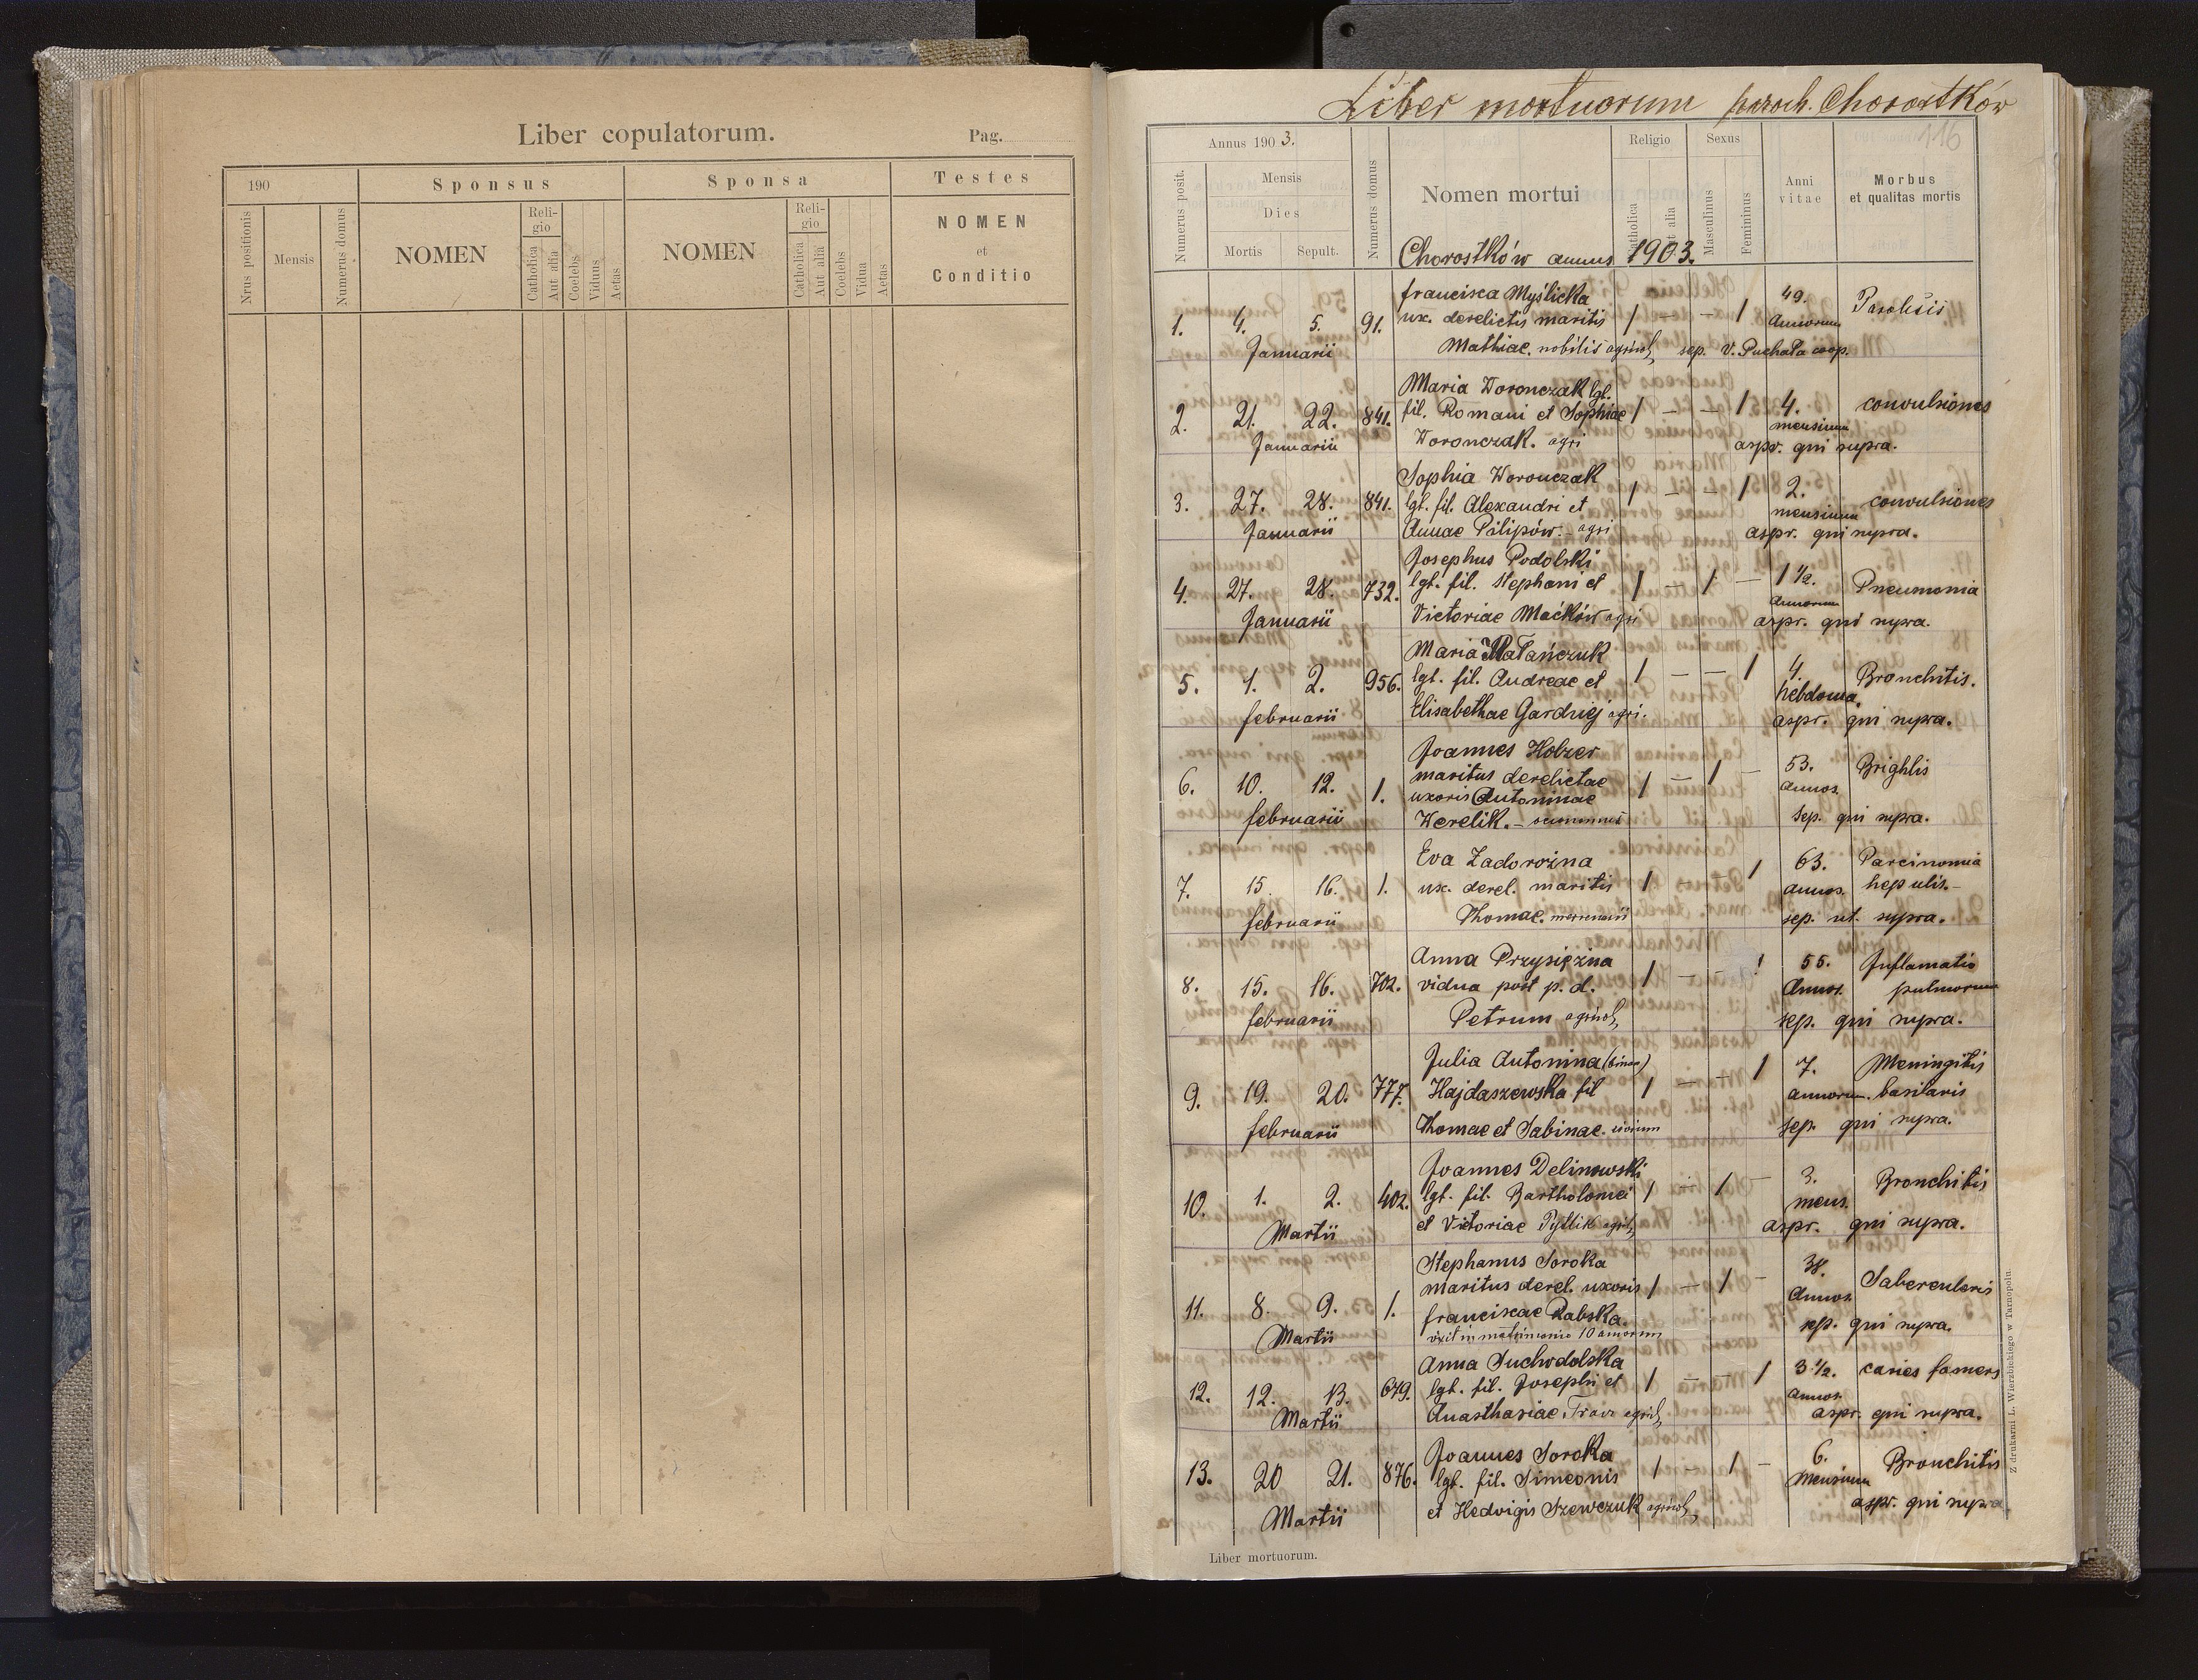 Liber copulatorum.
Pag.
190
Sponsus
Sponsa
Testes
Nrus positionis
Mensis
Numerus domus
NOMEN
Reli-
gio
Catholica
Aut alia
Coelebs
Viduus
Aetas
NOMEN
Reli-
gio
Catholica
Aut alia
Coelebs
Vidua
Aetas
NOMEN
et
Conditio
Liber mortuorum paroch. Chorostków
116
Annus 1903.
Numerus posit.
Mensis
Dies
Mortis
Sepult.
Numerus domus
Nomen mortui
Religio
Catholica
Aut alia
Sexus
Masculinus
Femininus
Anni
vitae
Morbus
et qualitas mortis
Chorostków annus 1903.
1. 4. 5. 91.
Januarii
Francisca Myślicka
ux. derelictis maritis
Mathiae. nobilis agricol,
1 — — 1
49.
Annorum
sep. V. Puchała coop.
2. 21. 22. 841.
Januarii
Maria Woronczak lgt.
fil. Romani et Sophiae
Woronczak. agri
1 — — 1
4.
mensium
convulsiones
aspr. qui supra.
3. 27. 28. 841.
Januarii
Sophia Woronczak
lgt. fil. Alexandri et
Annae Pilipów. - agri
1 — — 1
2.
mensium
convulsiones
aspr. qui supra.
4. 27. 28. 732.
Januarii
Josephus Podolski
lgt. fil. Stephani et
Victoriae Maćków agri
1 — 1 —
1 1/2.
Annorum
Pneumonia
aspr. qui supra.
5. 1. 2. 956.
Februarii
Maria Matańczuk
lgt. fil. Andreae et
Elisabethae Gardziej agri.
1 — — 1
4.
hebdoma.
Bronchitis.
aspr. qui supra.
6. 10. 12. 1.
Februarii
Joannes Holzer
maritus derelictae
uxoris Antoninae
Werelik. —
1 — 1 —
53.
Annos.
Brightis
sep. qui supra.
7. 15. 16. 1.
Februarii
Eva Zadorożna
ux. derel. maritis
Thomae. mercenarii
1 — 1
63.
annos.
Parcinomia
hepatis. —
sep. ut. supra.
8. 15. 16. 702.
Februarii
Anna Przysiężna
vidua post p. d.
Petrum agricol,
1 — — 1
55.
Annos.
Inflamatio
pulmorum
sep. qui supra.
9. 19. 20. 777.
Februarii
Julia Antonina (binom)
Hajdaszewska fil
Thomae et Sabinae. civium
1 — — 1
7.
annorum.
Meningitis
basilaris
sep. qui supra.
10. 1. 2. 402.
Martii
Joannes Delinowski
lgt. fil. Bartholomei
et Victoriae Pytlik agril,
1 — 1 —
3.
mens.
Bronchitis
aspr. qui supra.
11. 8. 9. 1.
Martii
Stephanus Soroka
maritus derel. uxoris
Franciscae Rabska.
vixit in matrimonio 10 annorum
1 — 1 —
38.
Annos.
Tuberculosis
sep. qui supra.
12. 12. 13. 679.
Martii
Anna Suchodolska
lgt. fil. Josephi et
Anasthasiae Tracz agricol,
1 — — 1
3 1/2.
Annos.
caries
aspr. qui supra.
13. 20 21. 876.
Martii
Joannes Soroka
lgt. fil. Simeonis
et Hedvigis Szewczuk agricol,
1 — 1 —
6.
Mensium
Bronchitis
aspr. qui supra
Liber mortuorum.
Z drukarni L. Wierzbickiego w Tarnopolu.